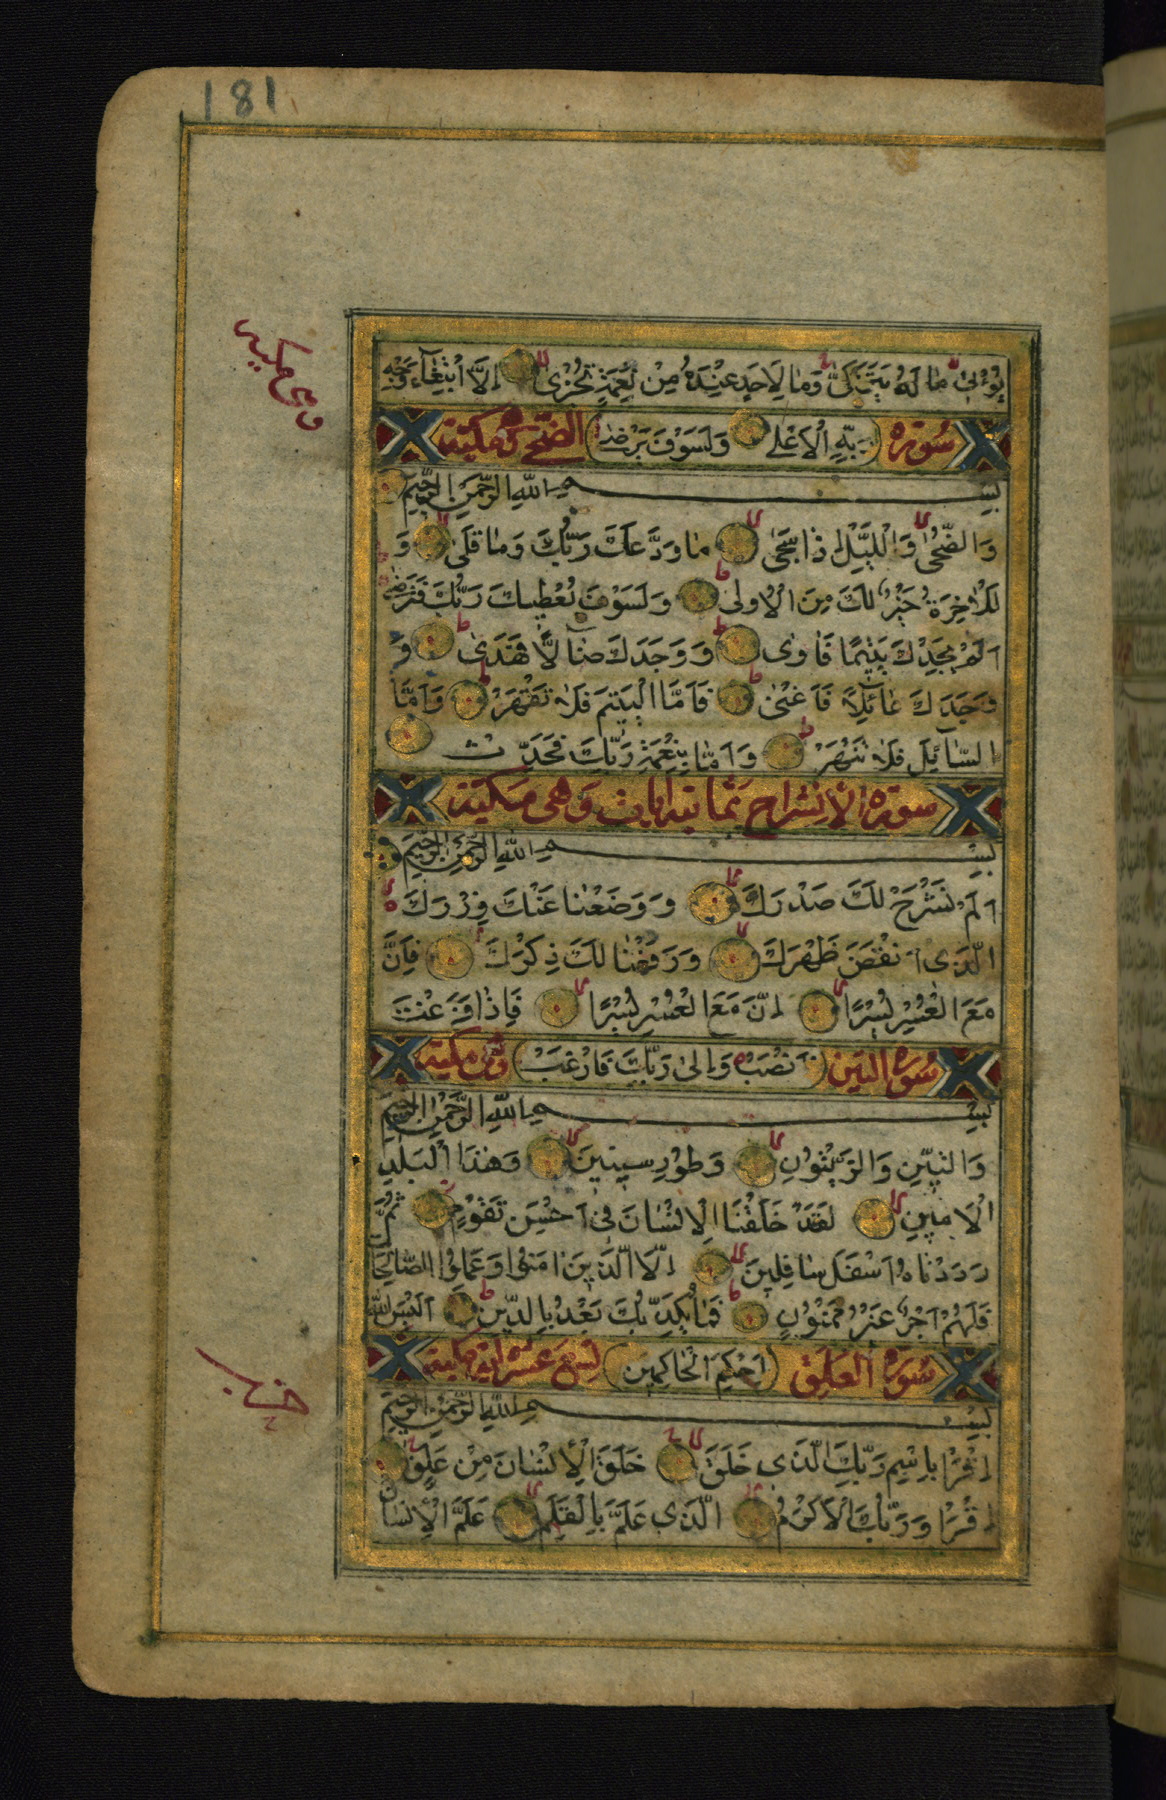 181
يُؤْتِى مَا لَهُ يَتَزَكَّىٰ وَمَا لِاَحَدٍ عِنْدَهُ مِنْ نِعْمَةٍ تُجْزٰى اِلَّا ابْتِغَآءَ وَجْهِ
سُورَة رَبِّهِ الْاَعْلٰى وَلَسَوْفَ يَرْضٰى الضحى مكية
وهى مكية
بِسْمِ اللّٰهِ الرَّحْمٰنِ الرَّحِيمِ
وَالضُّحٰى وَالَّيْلِ اِذَا سَجٰى مَا وَدَّعَكَ رَبُّكَ وَمَا قَلٰى وَ
لَلْاٰخِرَةُ خَيْرٌ لَكَ مِنَ الْاُولٰى وَلَسَوْفَ يُعْطِيكَ رَبُّكَ فَتَرْضٰى
اَلَمْ يَجِدْكَ يَتِيمًا فَاٰوٰى وَوَجَدَكَ ضَآلًّا فَهَدٰى وَ
وَجَدَكَ عَآئِلًا فَاَغْنٰى فَاَمَّا الْيَتِيمَ فَلَا تَقْهَرْ وَاَمَّا
السَّآئِلَ فَلَا تَنْهَرْ وَاَمَّا بِنِعْمَةِ رَبِّكَ فَحَدِّثْ
سورة الانشراح ثمانية ايات وهى مكية
بِسْمِ اللّٰهِ الرَّحْمٰنِ الرَّحِيمِ
اَلَمْ نَشْرَحْ لَكَ صَدْرَكَ وَوَضَعْنَا عَنْكَ وِزْرَكَ
الَّذِى اَنْقَضَ ظَهْرَكَ وَرَفَعْنَا لَكَ ذِكْرَكَ فَاِنَّ
مَعَ الْعُسْرِ يُسْرًا اِنَّ مَعَ الْعُسْرِ يُسْرًا فَاِذَا فَرَغْتَ
سُورَة التين فَانْصَبْ وَاِلٰى رَبِّكَ فَارْغَبْ وهى مكية
بِسْمِ اللّٰهِ الرَّحْمٰنِ الرَّحِيمِ
وَالتِّينِ وَالزَّيْتُونِ وَطُورِ سِينِينَ وَهٰذَا الْبَلَدِ
الْاَمِينِ لَقَدْ خَلَقْنَا الْاِنْسَانَ فِى اَحْسَنِ تَقْوِيمٍ ثُمَّ
رَدَدْنَاهُ اَسْفَلَ سَافِلِينَ اِلَّا الَّذِينَ اٰمَنُوا وَعَمِلُوا الصَّالِحَاتِ
فَلَهُمْ اَجْرٌ غَيْرُ مَمْنُونٍ فَمَا يُكَذِّبُكَ بَعْدُ بِالدِّينِ اَلَيْسَ اللّٰهُ
سُورَة العلق بِاَحْكَمِ الْحَاكِمِينَ تسع عشر اية مكية
بِسْمِ اللّٰهِ الرَّحْمٰنِ الرَّحِيمِ
اِقْرَاْ بِاسْمِ رَبِّكَ الَّذِى خَلَقَ خَلَقَ الْاِنْسَانَ مِنْ عَلَقٍ
اِقْرَاْ وَرَبُّكَ الْاَكْرَمُ الَّذِى عَلَّمَ بِالْقَلَمِ عَلَّمَ الْاِنْسَانَ